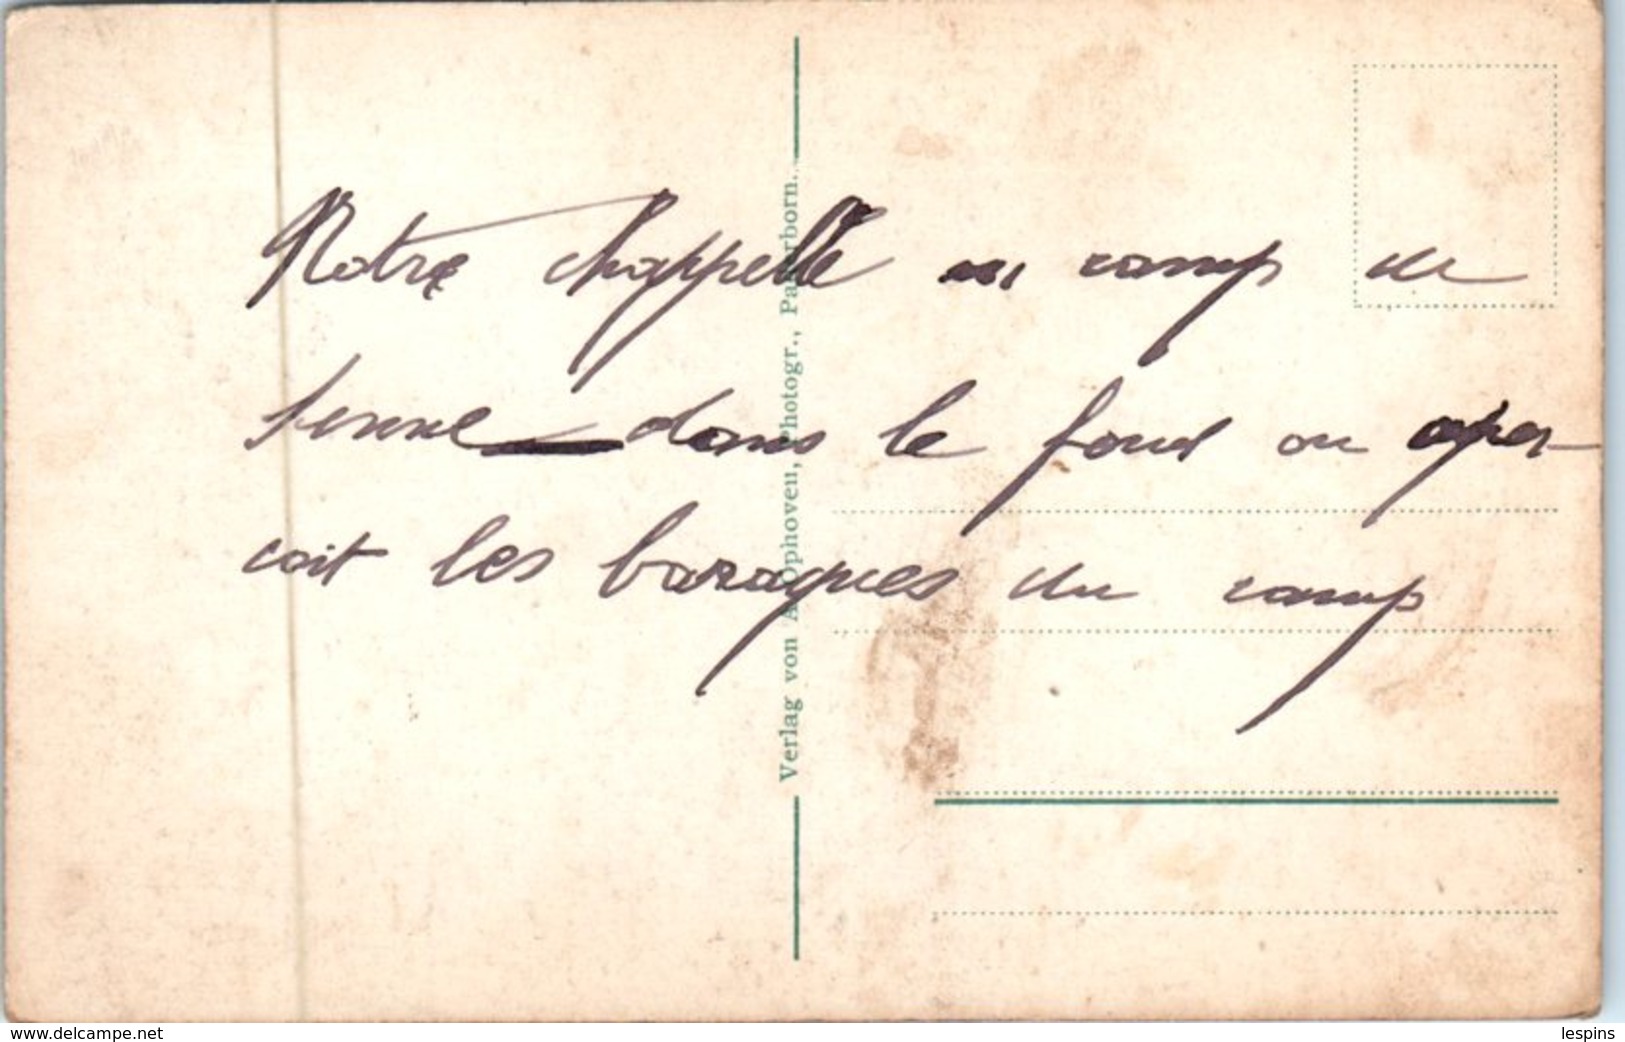 Notre chappelle au camp de
senne dans le fond on aper-
coit les baraques du camp
Verlag von A. Ophoven, Photogr., Paderborn.
www.delcampe.net
lespins